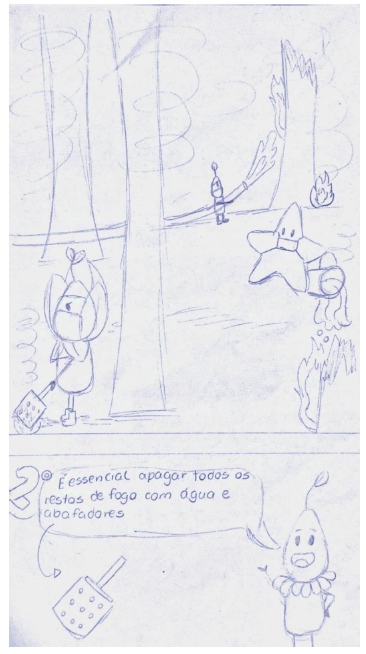 É essencial apagar todos os
restos de fogo com água e
abafadores